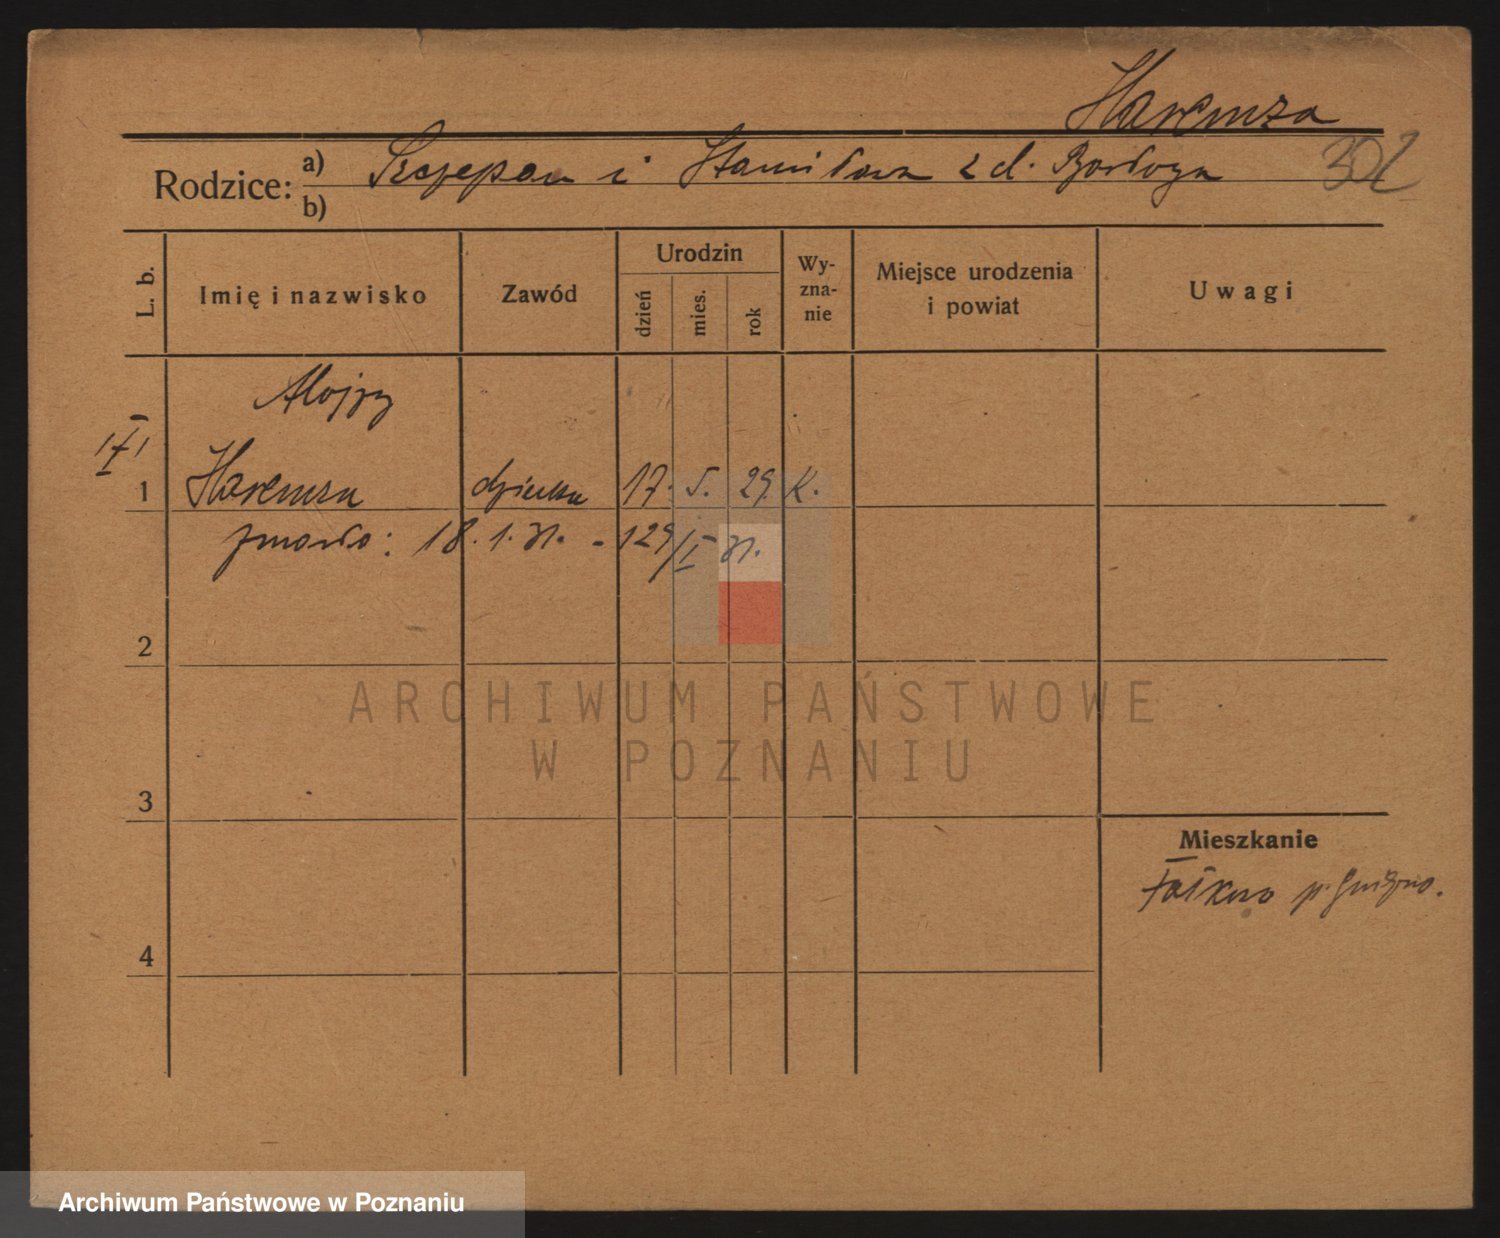 Haremza
Rodzice: a) Szczepan i Stanisława z d.
b)
L. b.
Imię i nazwisko
Zawód
Urodzin
dzień
mies.
rok
Wy-
zna-
nie
Miejsce urodzenia
i powiat
Uwagi
Alojzy
1 Haremza dziecko 17. 5. 29 K.
zmarło: 18. 1. 31. - 129/I 31.
2
3
4
Mieszkanie
p. Gniezno.
ARCHIWUM PAŃSTWOWE
W POZNANIU
Archiwum Państwowe w Poznaniu